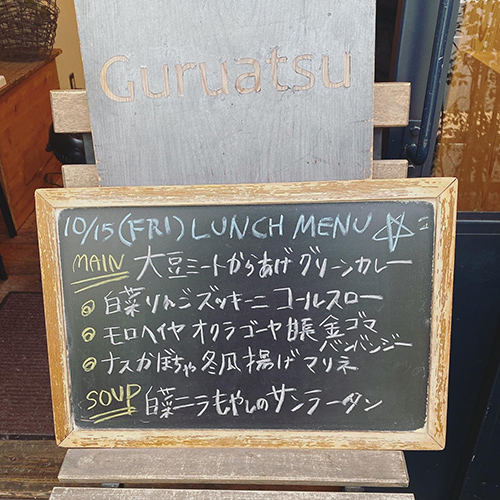 Guruatsu
10/15(FRI) LUNCH MENU
MAIN 大豆ミートからあげグリーンカレー
白菜りんごズッキーニ コールスロー
モロヘイヤ オクラゴーヤ 金ゴマ
バンバンジー
ナスかぼちゃ冬瓜揚げマリネ
SOUP 白菜ニラもやしのサンラータン